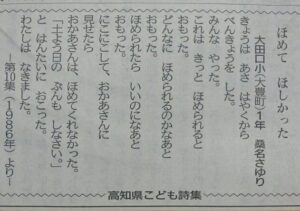 ほめて ほしかった
大田口小(大豊町)1年 桑名さゆり
きょうは あさ はやくから
べんきょうを した。
みんな やった。
これは きっと ほめられると
おもった。
どんなに ほめられるのかなあと
おもった。
ほめられたら いいのになあと
おもった。
にこにこして、おかあさんに
見せたら
おかあさんは、ほめてくれなかった。
「土よう日の ぶんも しなさい。」
と はんたいに おこった。
わたしは なきました。
―第10集(1986年)より―
高知県こども詩集